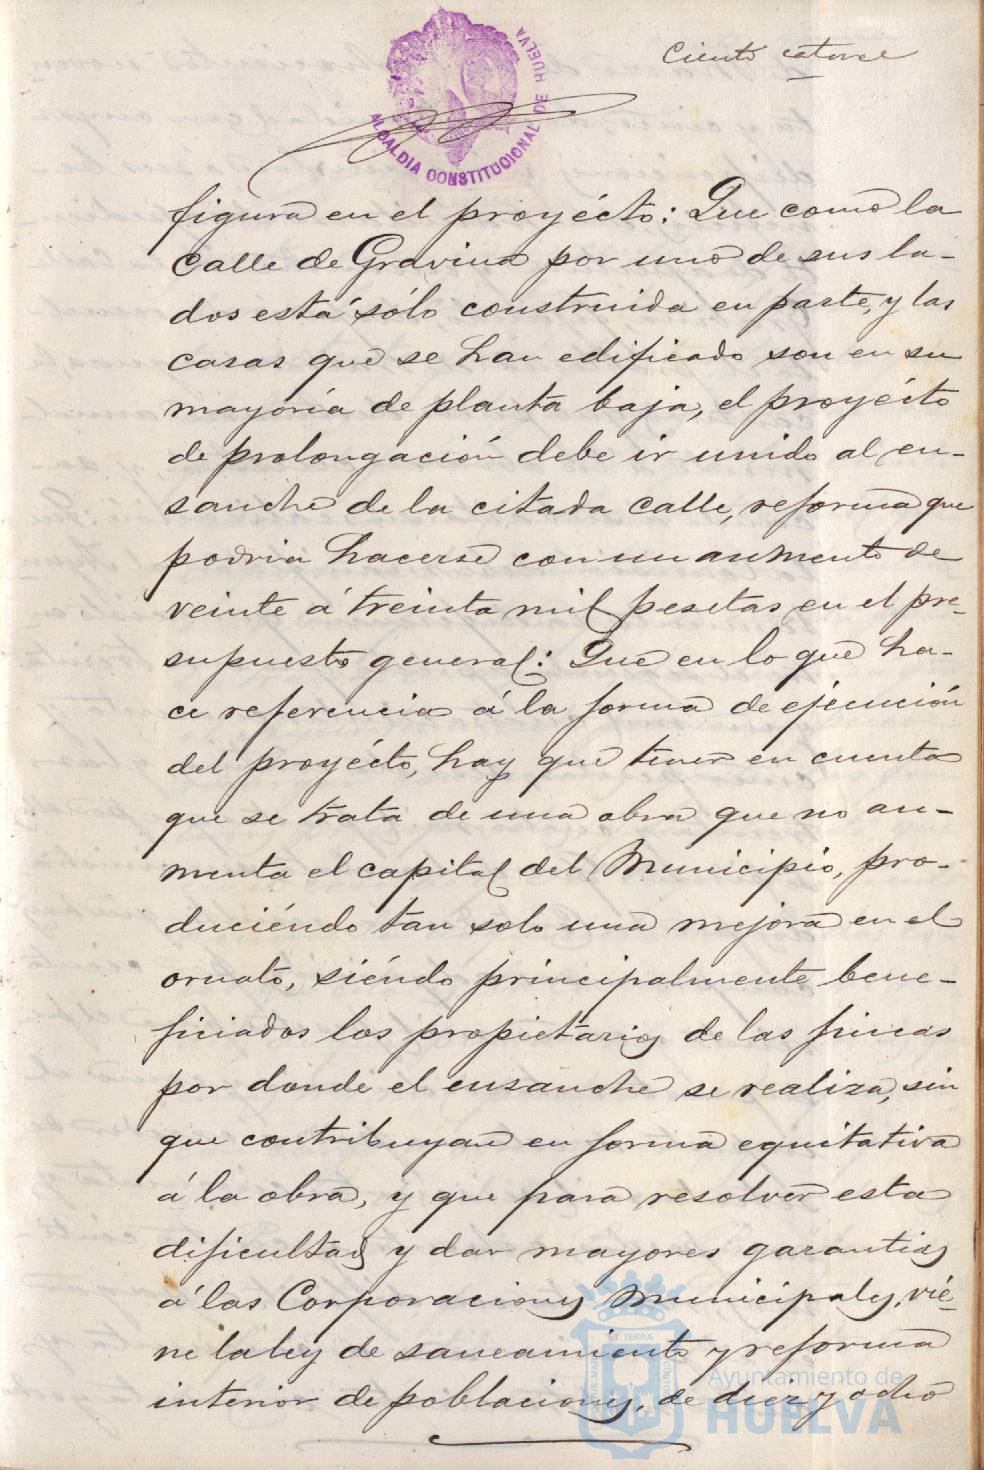 Ciento catorce
ALCALDIA CONSTITUCIONAL DE HUELVA
figura en el proyécto: Que como la
calle de Gravina por uno de sus la-
dos está sólo construida en parte, y las
casas que se han edificado son en su
mayoría de planta baja, el proyécto
de prolongación debe ir unido al en-
sanche de la citada calle, reforma que
podria hacerse con un aumento de
veinte á treinta mil pesetas en el pre-
supuesto general: Que en lo que ha-
ce referencia á la forma de ejecución
del proyécto, hay que tener en cuenta
que se trata de una obra que no au-
menta el capital del Municipio, pro-
duciéndo tan solo una mejora en el
ornato, siéndo principalmente bene-
ficiados los propietarios de las fincas
por donde el ensanche se realiza, sin
que contribuyan en forma equitativa
á la obra, y que para resolver esta
dificultad y dar mayores garantias
á las Corporaciones Municipales, vié-
ne la ley de saneamiento y reforma
interior de poblaciones, de diez y ocho
Ayuntamiento de
HUELVA